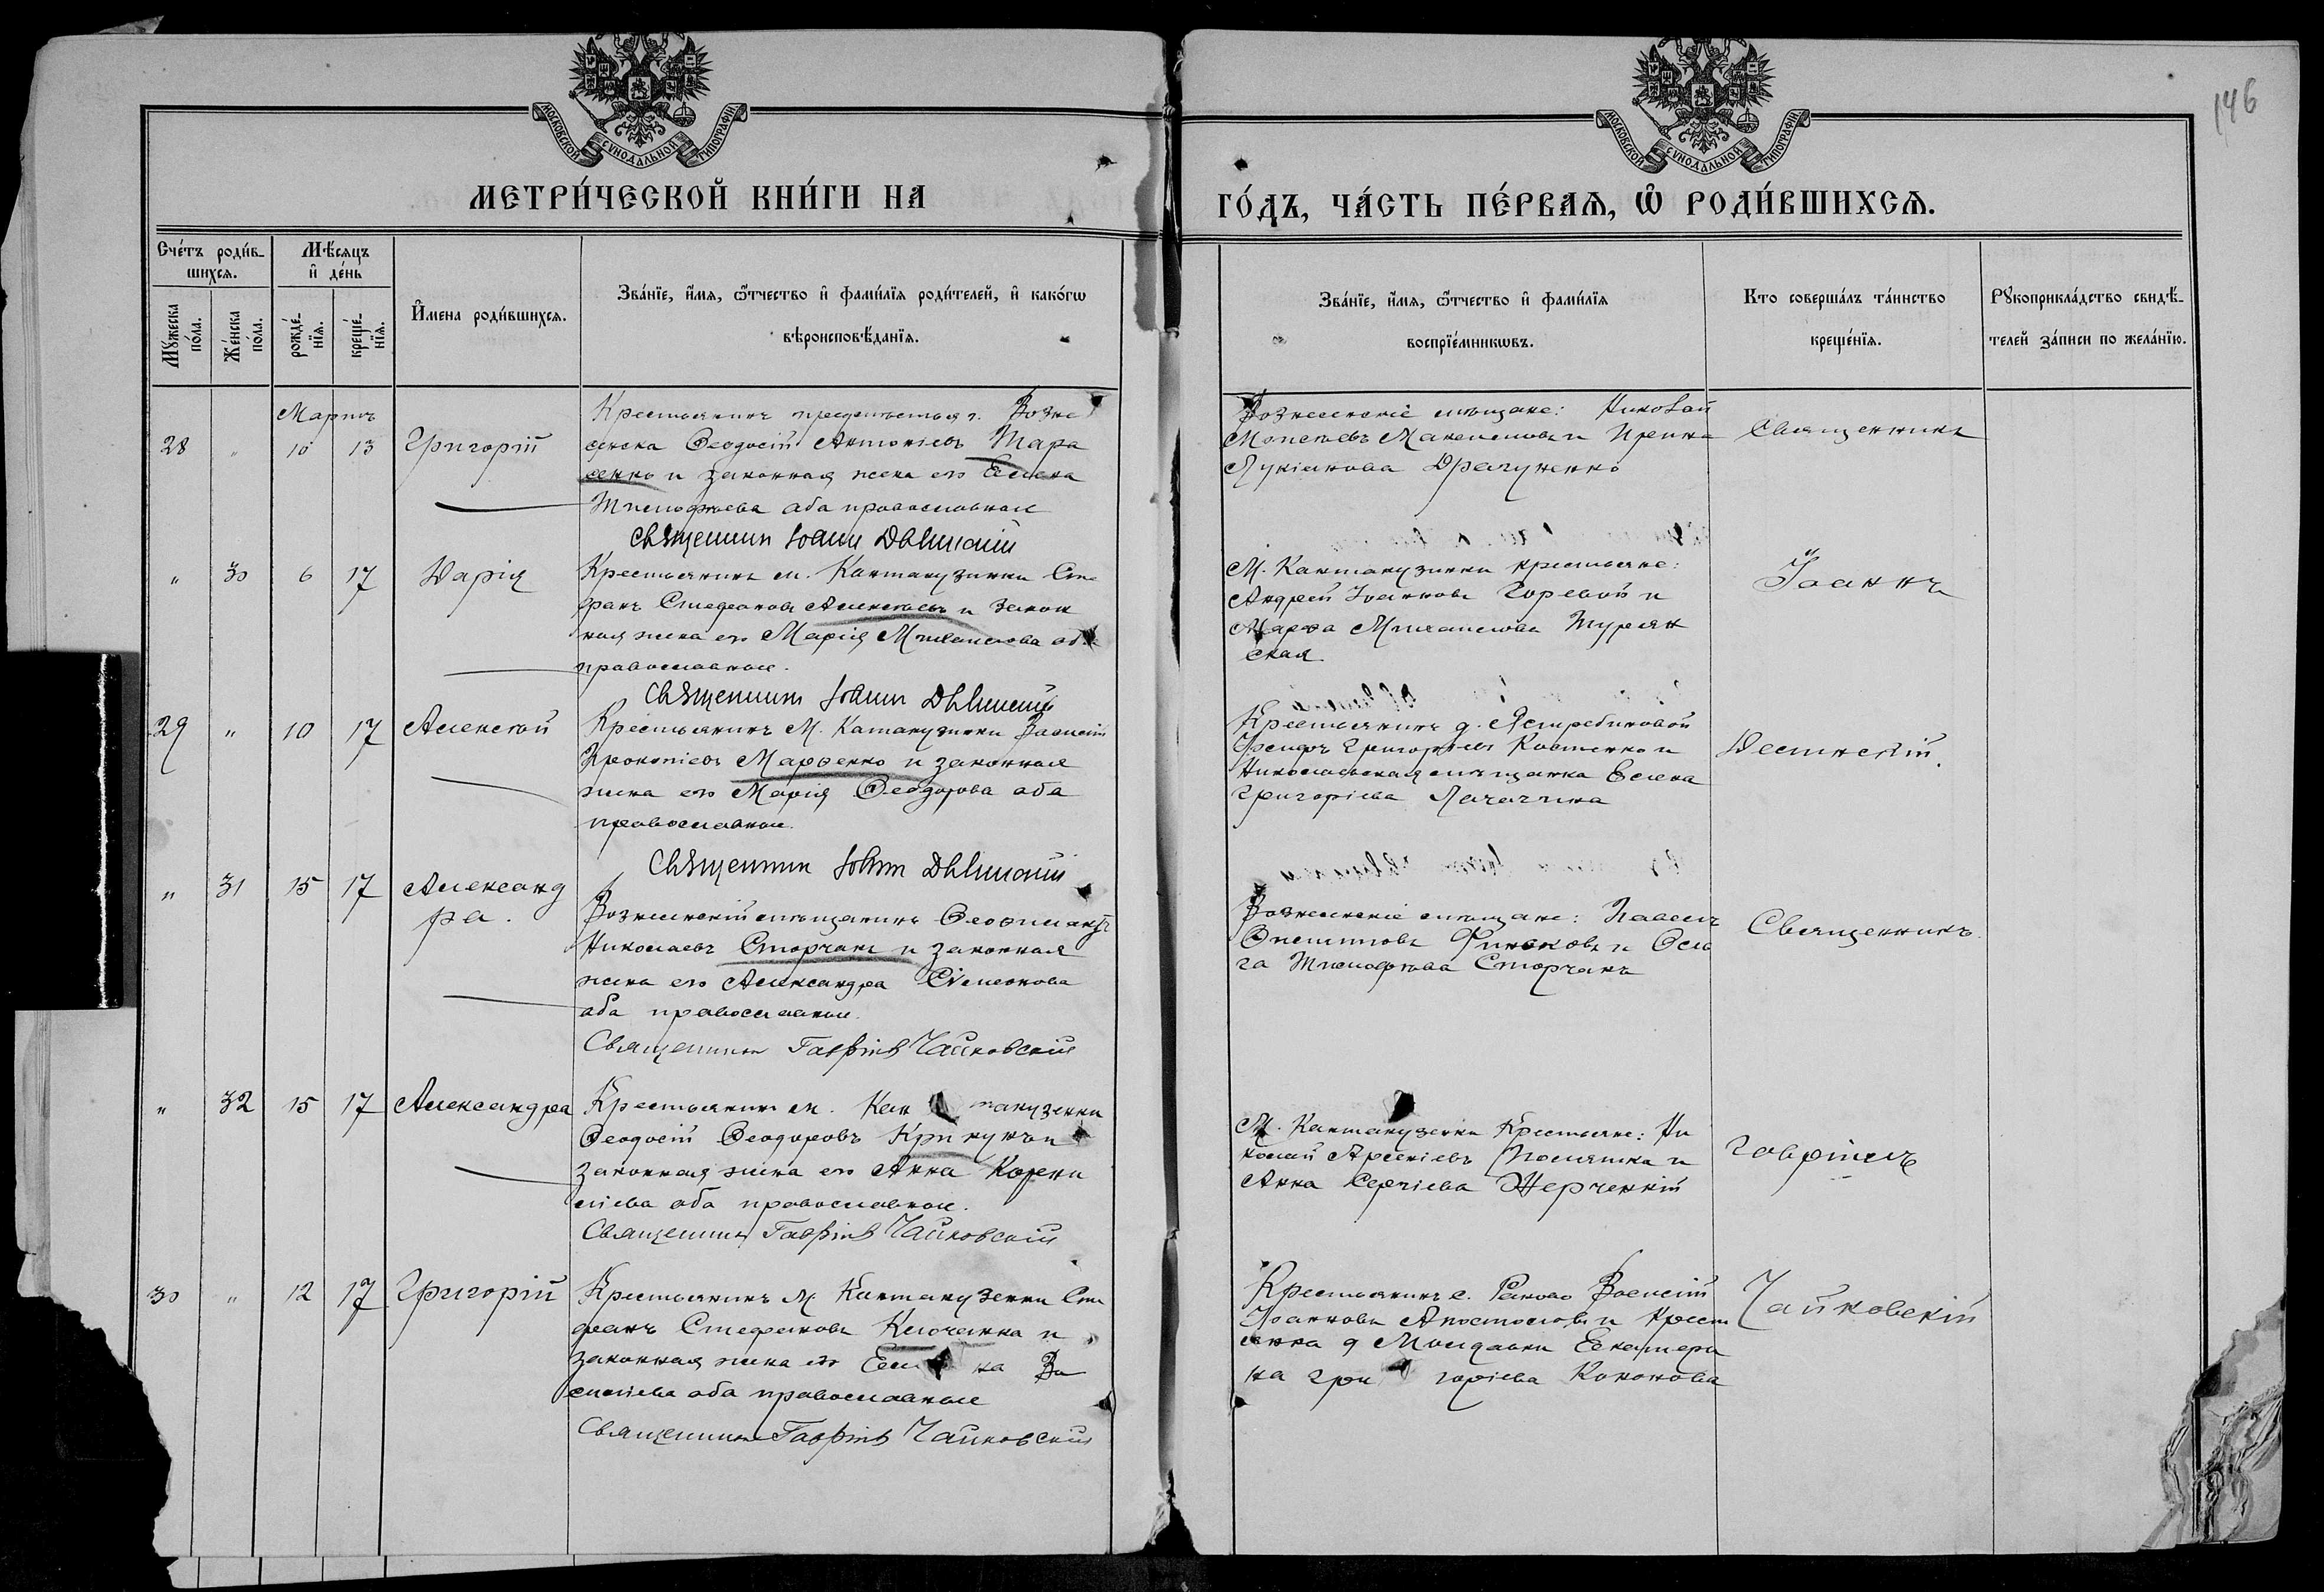 146
МОСКОВСКОЙ СУНОДАЛЬНОЙ ТИПОГРАФІИ
МОСКОВСКОЙ СУНОДАЛЬНОЙ ТИПОГРАФІИ
МЕТРИ́ЧЕСКОЙ КНИ́ГИ НА
ГО́ДЪ, ЧА́СТЬ ПЕ́РВАѦ, Ѡ҆ РОДИ́ВШИХСѦ.
Сче́тъ роди́в-
шихсѧ.
Мѣ́сѧцъ
и҆ де́нь
Мꙋ́жеска
по́ла.
Же́нска
по́ла.
рожде́-
нїѧ.
креще́-
нїѧ.
И҆мена роди́вшихсѧ.
Зва́нїе, и҆́мѧ, ѻ҆́тчество и҆ фами́лїѧ роди́телей, и҆ како́гѡ
вѣроисповѣ́данїѧ.
Зва́нїе, и҆́мѧ, ѻ҆́тчество и҆ фами́лїѧ
воспрїе́мникѡвъ.
Кто соверша́лъ та́инство
креще́нїѧ.
Рꙋкоприкла́дство свидѣ́-
телей за́писи по жела́нїю.
Мартъ
28 " 10 13 Григорій
Крестьянинъ предмѣстья г. Возне
сенска Ѳеодосій Антоніевъ Тара
сенко и законная жена его Елена
Тимофѣева оба православные
Священникъ Іоаннъ
Вознесенскіе мѣщане: Николай
Моисеевъ Максимовъ и Ирина
Лукіанова Драгуненко
Священникъ
" 30 6 17 Дарія
Крестьянинъ м. Кантакузинки Сте
фанъ Стефановъ Алексѣевъ и закон
ная жена его Марія Михаилова оба
православные.
Священникъ Іоаннъ
М. Кантакузинки крестьяне:
Андрей Іоанновъ Горевой и
Марѳа Михаилова Турлян
ская
Іоаннъ
29 " 10 17 Алексѣй
Крестьянинъ М. Катакузинки Василій
Прокопіевъ Марѳенко и законная
жена его Марія Ѳеодорова оба
православные.
Священникъ Іоаннъ
Крестьянинъ д. Ястребиновой
Григорьевъ Ковтенко и
Николаевская мѣщанка Елена
Григоріева
" 31 15 17 Александ
ра.
Вознесенскій мѣщанинъ Ѳеофилактъ
Николаевъ Сторчакъ и законная
жена его Александра Сѵмеонова
оба православные.
Священникъ Гавріилъ Чайковскій
Вознесенскіе мѣщане: Павелъ
Филипповъ и Оль
га Тимофѣева Сторчакъ
Священникъ
" 32 15 17 Александра
Крестьянинъ м. Кан такузенки
Ѳеодосій Ѳеодоровъ Крикунъ и
законная жена его Анна Корни
ліева оба православные.
Священникъ Гавріилъ Чайковскій
М. Кантакузенки Крестьяне: Ни
колай Арсеніевъ и
Анна Сергіева
Гавріилъ
30 " 12 17 Григорій
Крестьянинъ М Кантакузенки Сте
фанъ Стефановъ Клочанка и
законная жена его Еле на Ва
силіева оба православные
Священникъ Гавріилъ Чайковскій
Крестьянинъ с. Раково Василій
Іоанновъ Апостоловъ и Крест
янка д Молдавки Екатери
на Гри горіева Кононова
Чайковскій